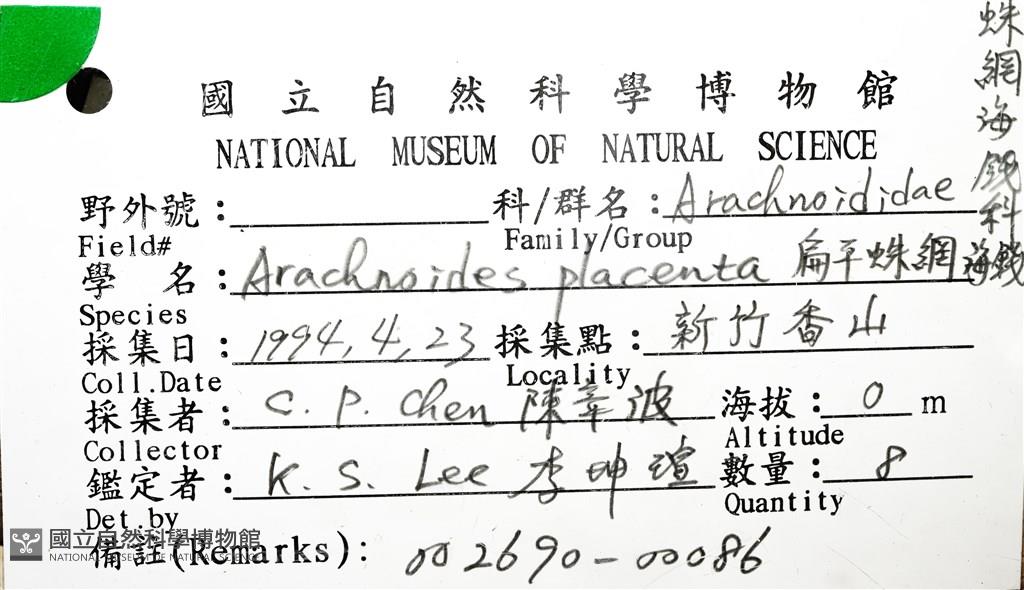 國立自然科學博物館
NATIONAL MUSEUM OF NATURAL SCIENCE
蛛網海錢科
野外號： 科/群名：Arachnoididae
Field# Family/Group
學 名：Arachnoides placenta 扁平蛛網海錢
Species
採集日：1994,4,23 採集點：新竹香山
Coll.Date Locality
採集者：C. P. Chen 陳章波 海拔：0 m
Collector Altitude
鑑定者：K. S. Lee 李坤瑄 數量：8
Det.by Quantity
備註(Remarks)：002690-00086
國立自然科學博物館
NATIONAL MUSEUM OF NATURAL SCIENCE